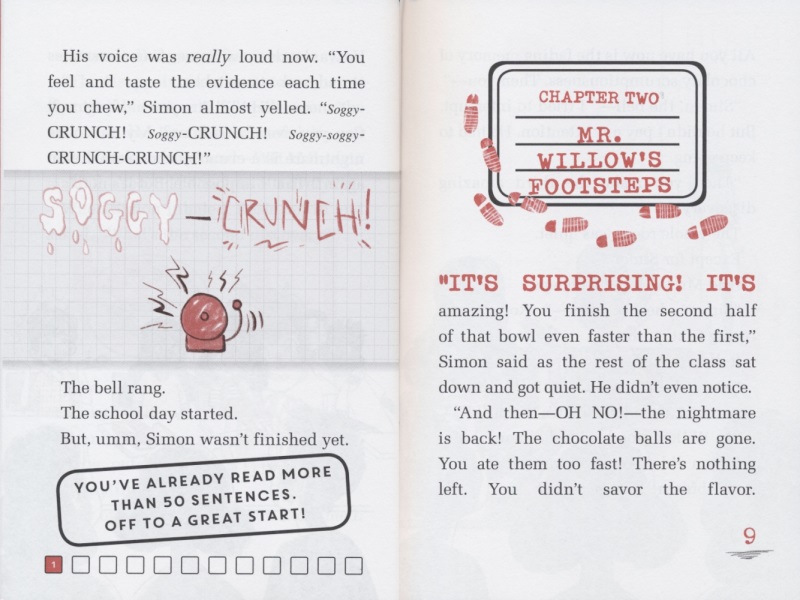 His voice was really loud now. “You
feel and taste the evidence each time
you chew,” Simon almost yelled. “Soggy-
CRUNCH! Soggy-CRUNCH! Soggy-soggy-
CRUNCH-CRUNCH!”
SOGGY—CRUNCH!
The bell rang.
The school day started.
But, umm, Simon wasn’t finished yet.
YOU’VE ALREADY READ MORE
THAN 50 SENTENCES.
OFF TO A GREAT START!
1
CHAPTER TWO
MR.
WILLOW’S
FOOTSTEPS
"IT’S SURPRISING! IT’S
amazing! You finish the second half
of that bowl even faster than the first,”
Simon said as the rest of the class sat
down and got quiet. He didn’t even notice.
“And then—OH NO!—the nightmare
is back! The chocolate balls are gone.
You ate them too fast! There’s nothing
left. You didn’t savor the flavor.
9